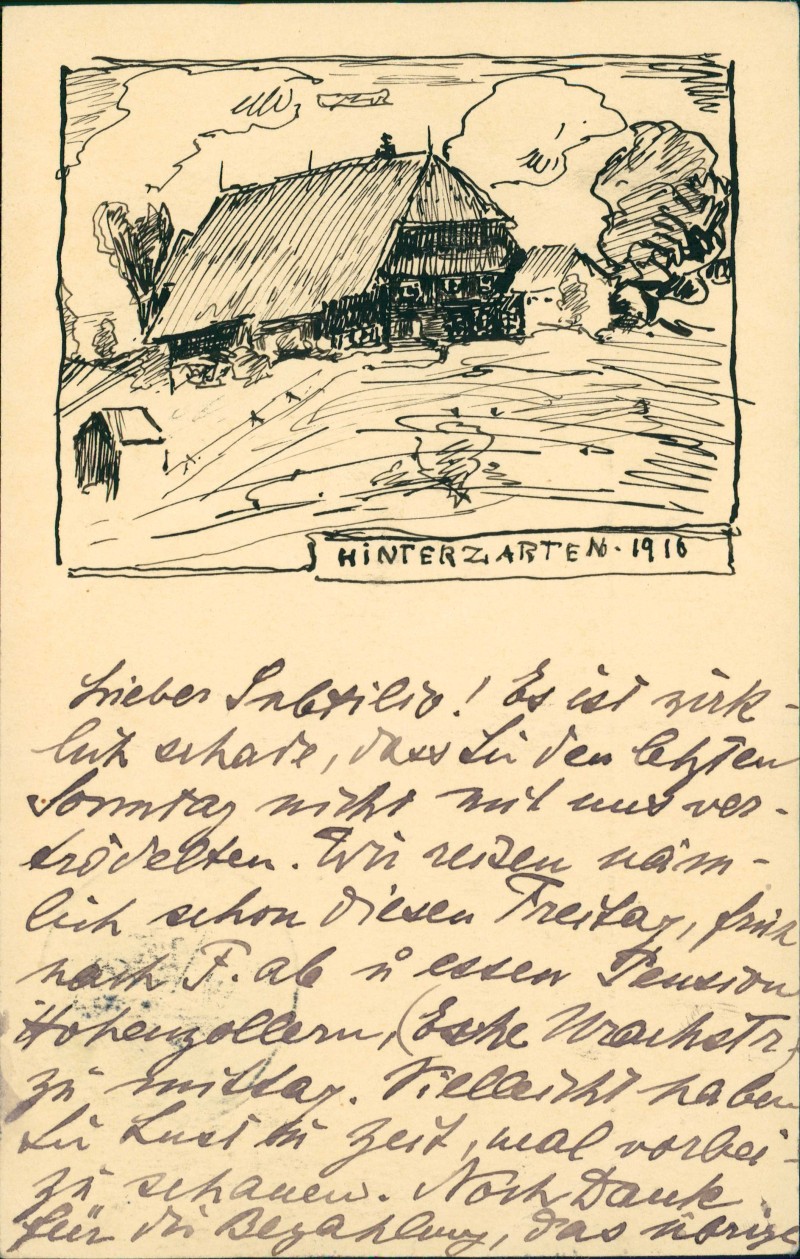 HINTERZARTEN. 1916
Lieber Subtilio! Es ist wirk-
lich schade, dass Sie den letzten
Sonntag nicht mit uns ver-
trödelten. Wir reisen näm-
lich schon diesen Freitag, früh
nach F. ab u essen Pension
Hohenzollern, (Ecke
zu mittag. Vielleicht haben
Sie Lust u Zeit, mal vorbei-
zu schauen. Noch Dank
für die Bezahlung, das übrige